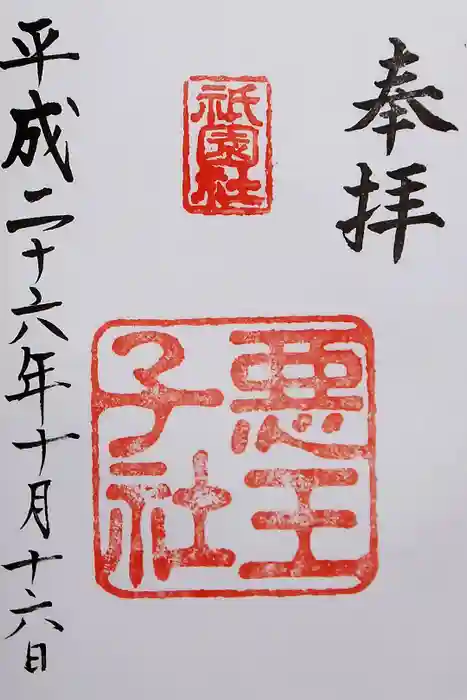 奉拝
祇園社
悪王
子社
平成二十六年十月十六日